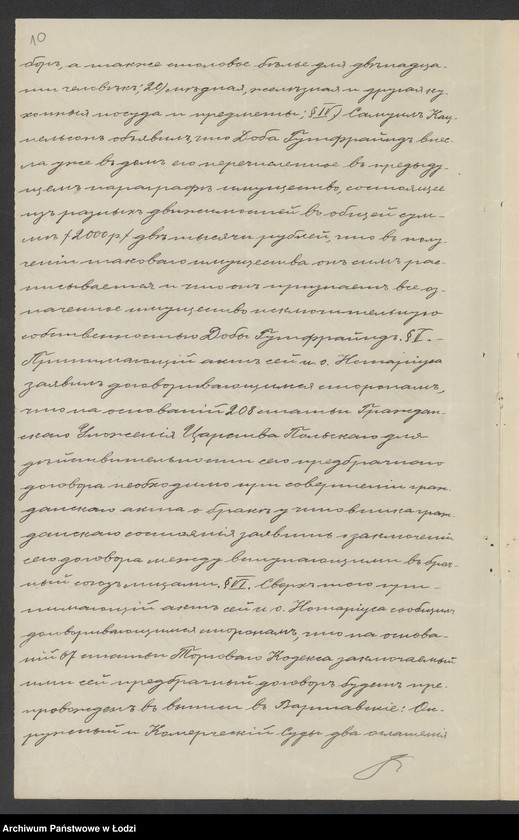 10
боръ, а также столовое бѣлье для двѣнадца-
ти человѣкъ; 20/ мѣдная, желѣзная и другая ку-
хонная посуда и предметы; § IV) Самуилъ Кац-
нельсонъ объявилъ, что Доба Гутфрайндъ внес-
ла уже въ домъ его перечисленное въ предыду-
щемъ параграфѣ имущество, состоящее
изъ разныхъ движимостей въ общей сум-
мѣ /2000 р/ двѣ тысячи рублей, что въ полу-
ченіи таковаго имущества онъ симъ рас-
писывается и что онъ признаетъ все оз-
наченное имущество исключительною
собственностью Добы Гутфрайндъ. § V. –
Принимающій актъ сей и. о. Нотаріуса
заявилъ договаривающимся сторонамъ,
что на основаніи 208 статьи Граждан-
скаго Уложенія Царства Польскаго для
дѣйствительности сего предбрачнаго
договора необходимо при совершеніи граж-
данскаго акта о бракѣ у чиновника граж-
данскаго состоянія заявить о заключеніи
сего договора между вступающими въ брач-
ный союзъ лицами. § VI. Сверхъ того при-
нимающій актъ сей и. о. Нотаріуса сообщилъ
договаривающимся сторонамъ, что на основа-
ніи 67 статьи Торговаго Кодекса заключаемый
ими сей предбрачный договоръ будетъ пре-
провожденъ въ выписи въ Варшавскіе: Ок-
ружный и Комерческій Суды два оглашенія
Archiwum Państwowe w Łodzi